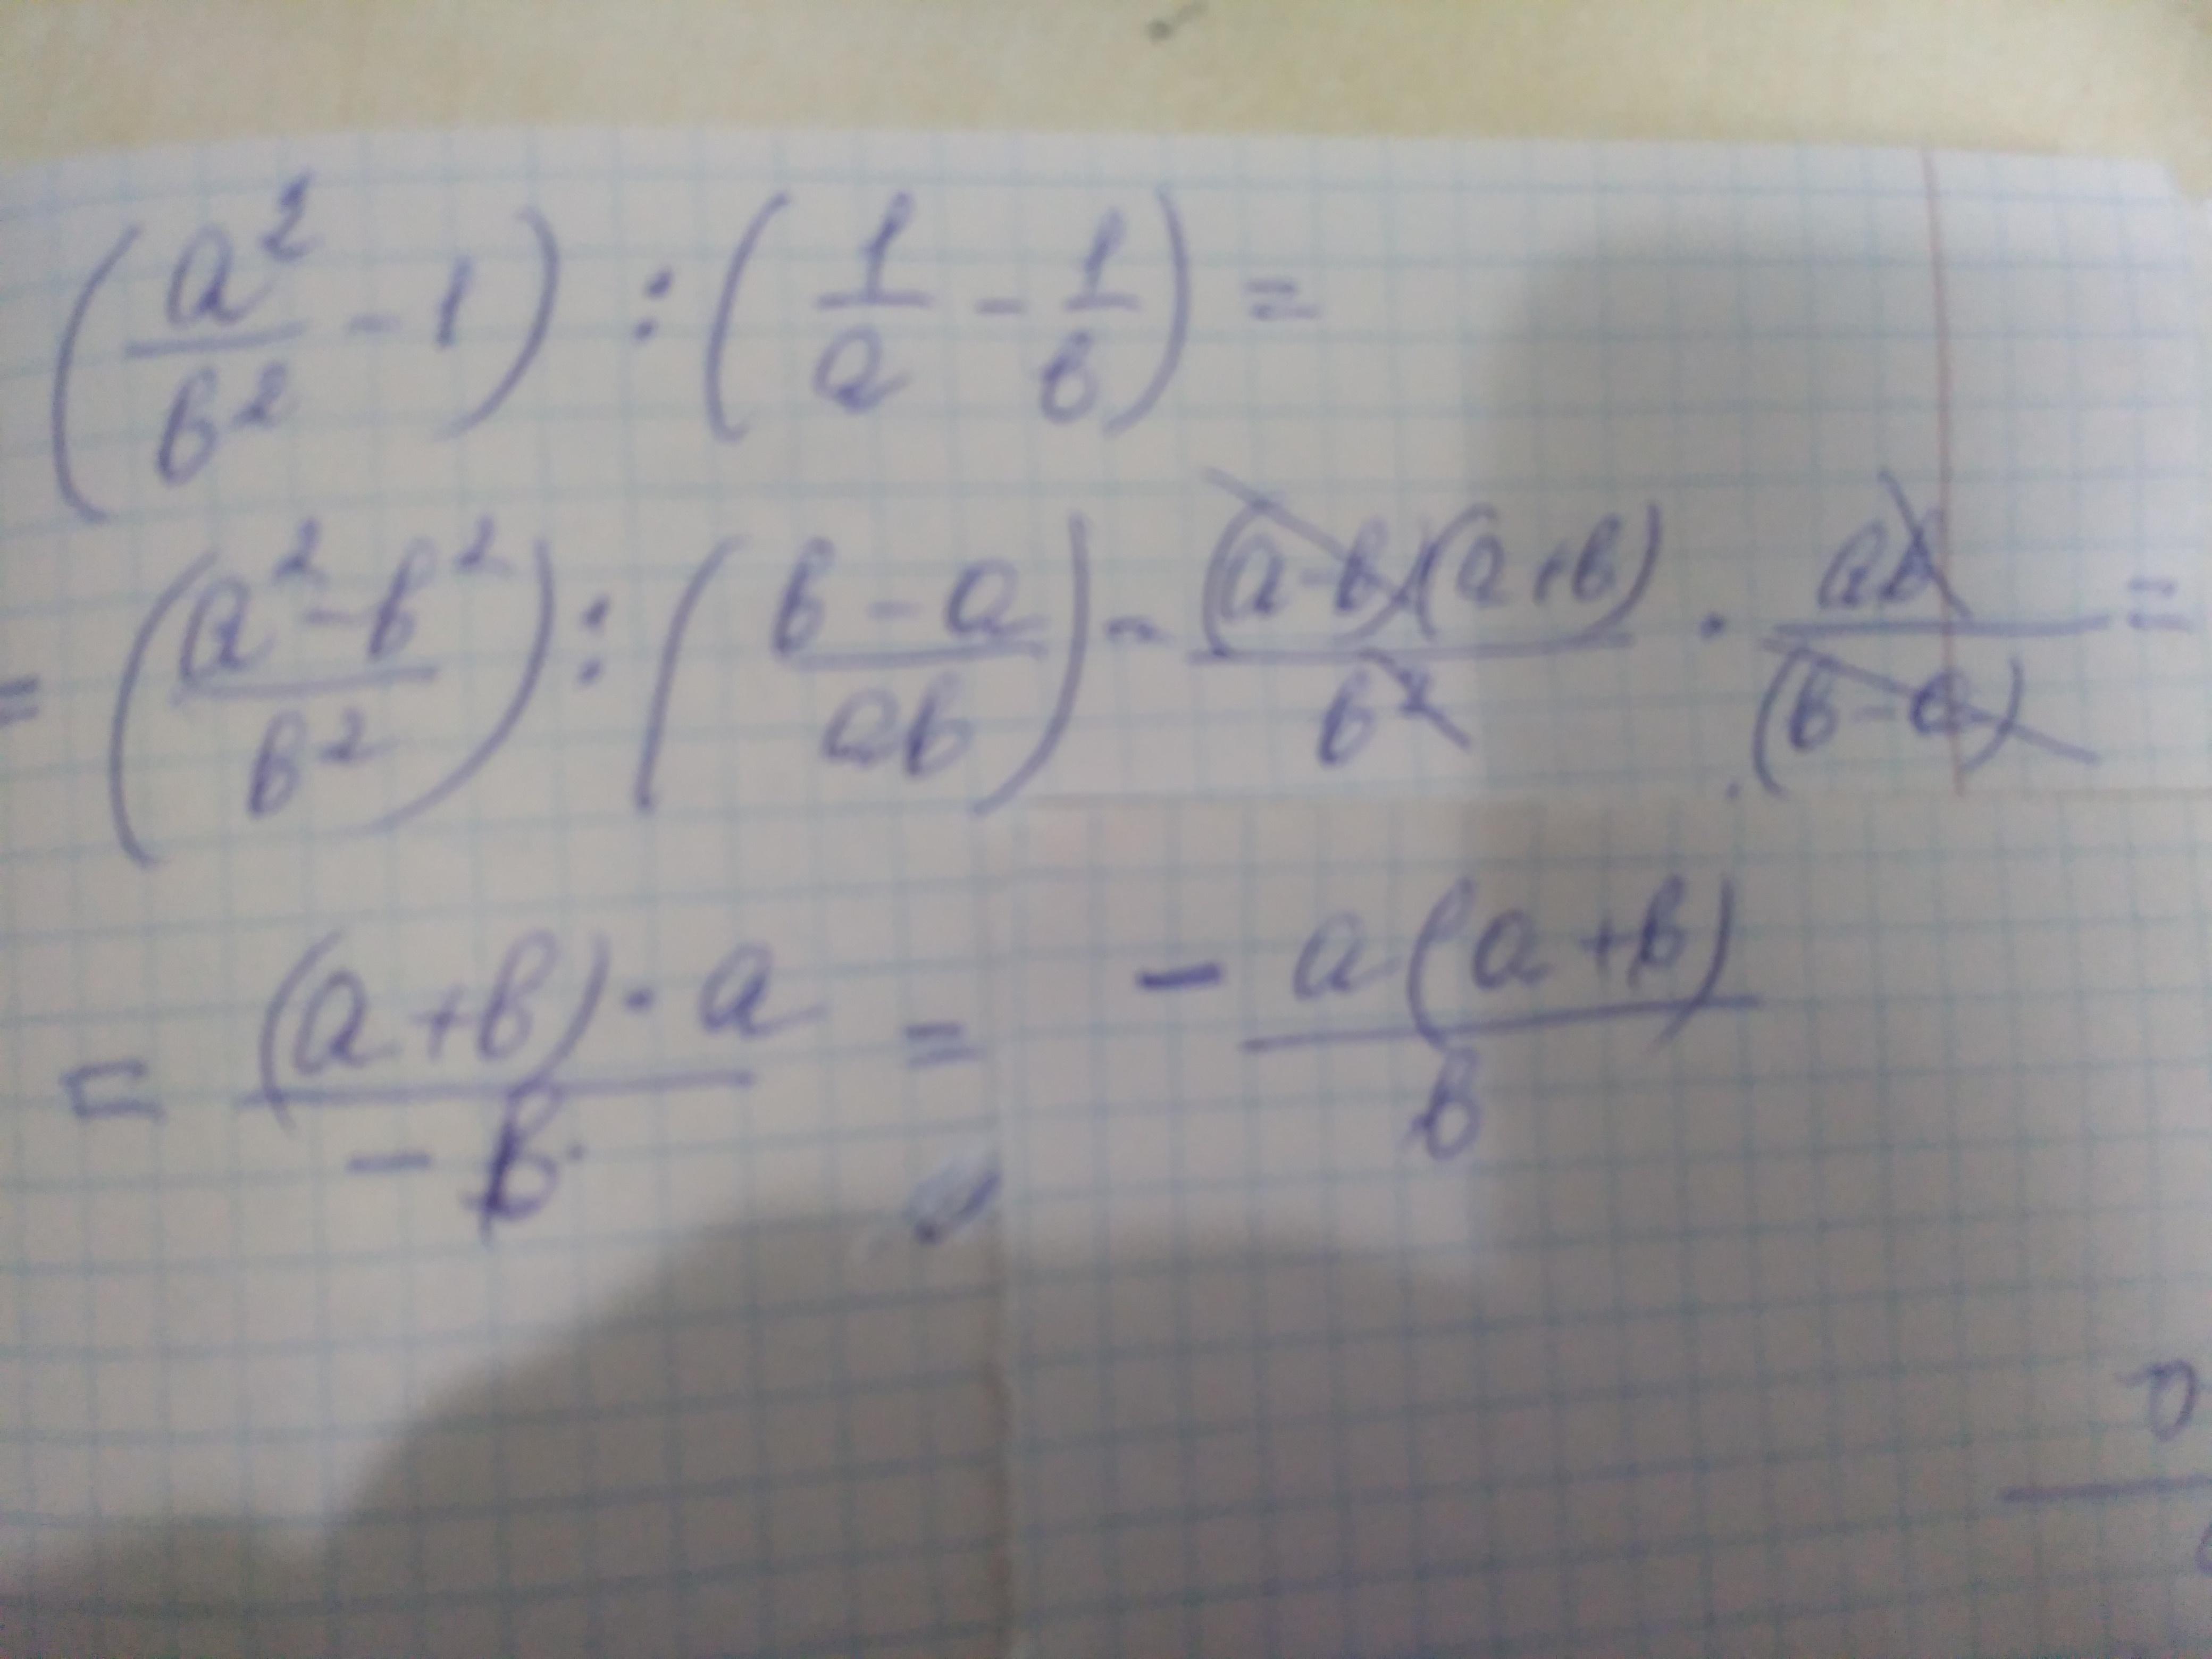 (a²/b² - 1) : (1/a - 1/b) =
= (a²-b²/b²) : (b-a/ab) - (a-b)(a+b)/b² · ab/(b-a) =
= (a+b)·a/-b = - a(a+b)/b